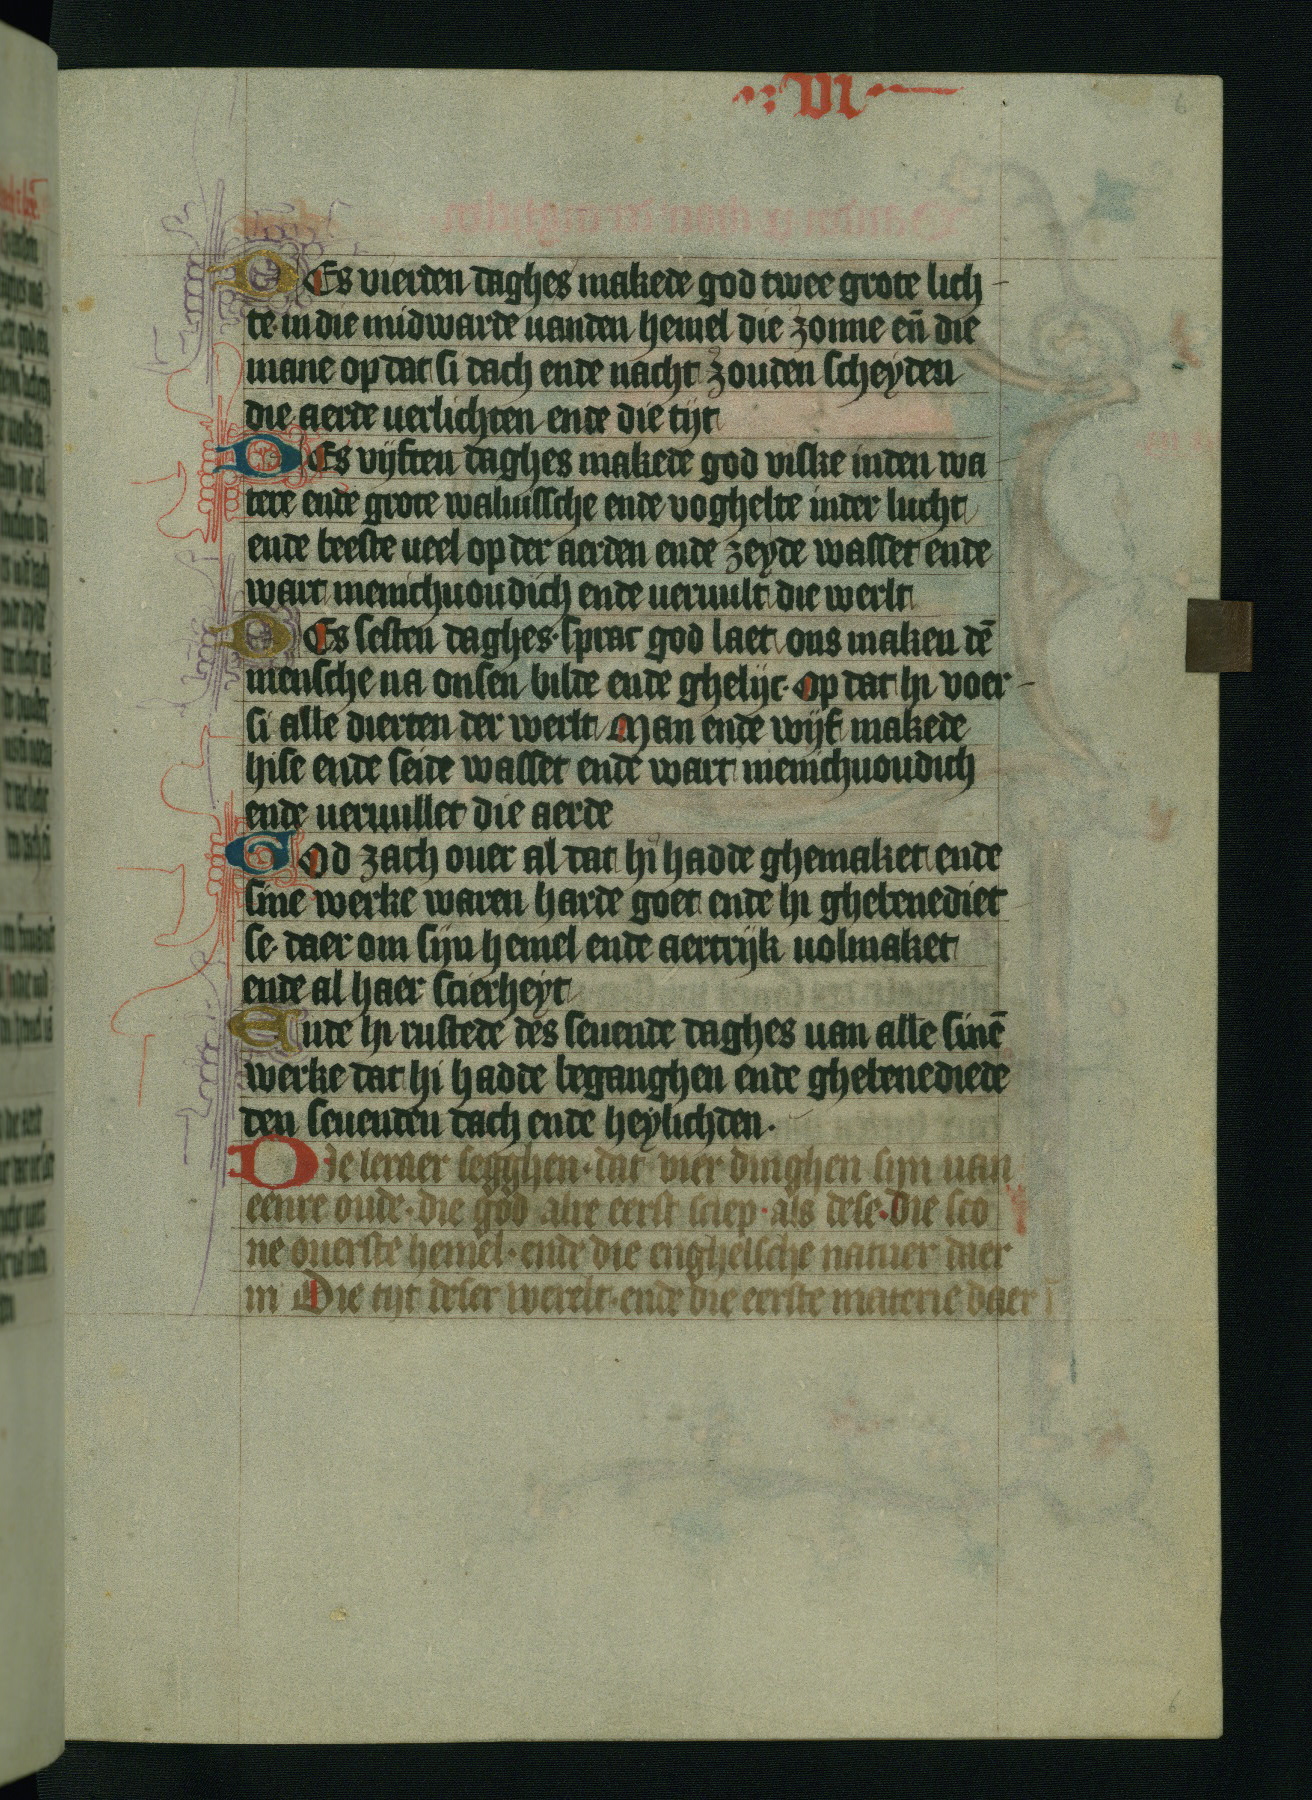 VI
6
DEs vierden daghes makede god twee grote lich-
te in die midwarde uanden hemel die zonne en̄ die
mane op dat si dach ende nacht zouden scheyden
die aerde uerlichten ende die tijt
DEs vijften daghes makede god viske inden wa-
tere ende grote waluissche ende voghelte inder lucht
ende beeste ueel op der aerden ende zeyde wasset ende
wart menichuoudich ende ueruult die werlt
DEs sesten daghes· sprac god laet ons maken dē
mensche na onsen bilde ende ghelijc· Op dat hi voer-
si alle dierten der werlt Man ende wijf makede
hise ende seide wasset ende wart menichuoudich
ende ueruullet die aerde
GOd zach ouer al dat hi hadde ghemaket ende
sine werke waren harde goet ende hi ghebenediet
se· daer om sijn hemel ende aertrijk uolmaket
ende al haer scierheyt
Ende hi rustede des seuende daghes uan alle sinē
werke dat hi hadde beganghen ende ghebenediede
den seuenden dach ende heylichden·
DIe leraer segghen· dat vier dinghen sijn uan
eenre oude· die god alre eerst sciep· als dese· Die sco
ne ouerste hemel· ende die enghelsche natuer daer
in Die tijt deser werelt· ende die eerste materie daer ī
6